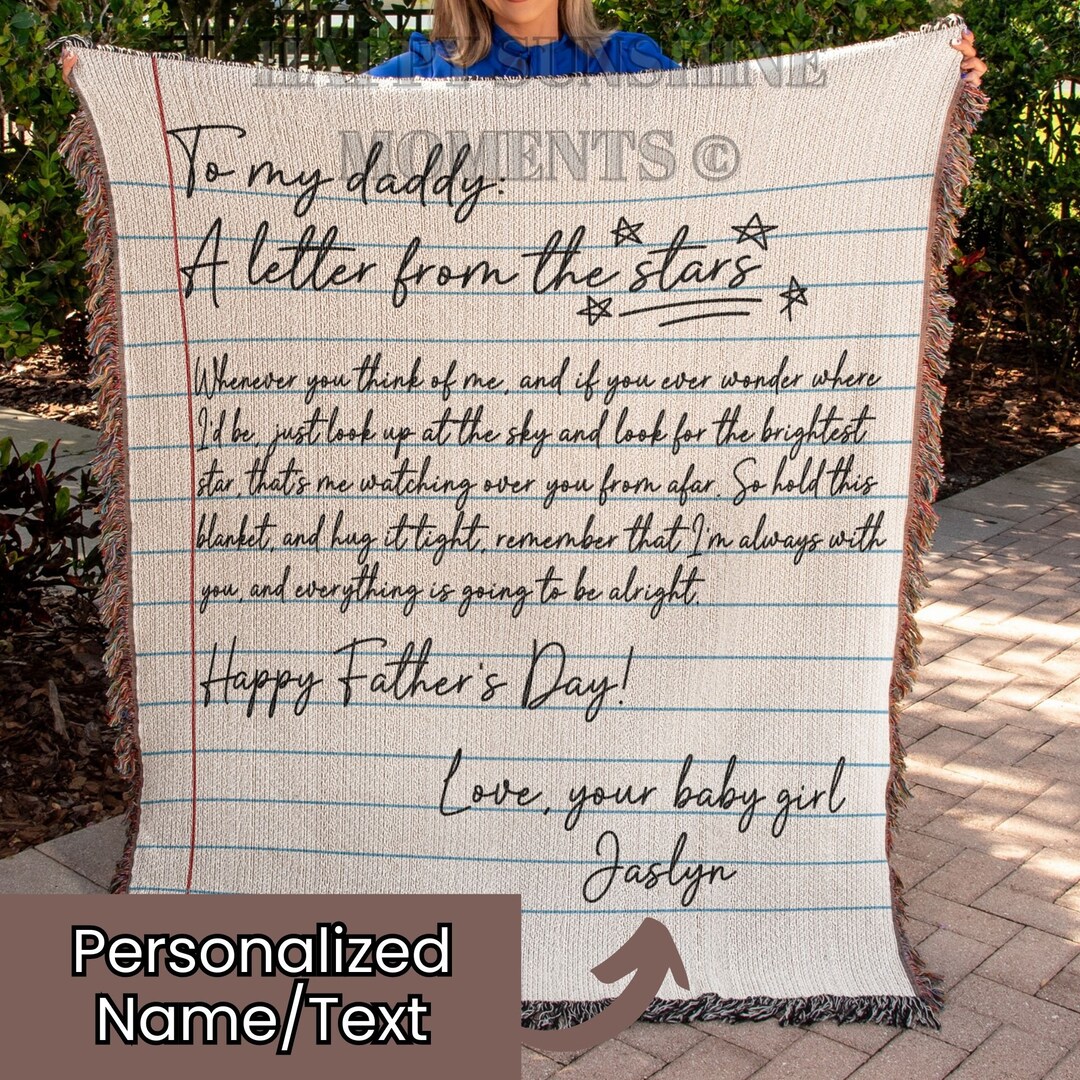 HAPPY SUNSHINE
MOMENTS ©
To my daddy:
A letter from the stars
Whenever you think of me, and if you ever wonder where
I'd be, just look up at the sky and look for the brightest
star, that's me watching over you from afar. So hold this
blanket, and hug it tight, remember that I'm always with
you, and everything is going to be alright.
Happy Father's Day!
Love, your baby girl
Jaslyn
Personalized
Name/Text